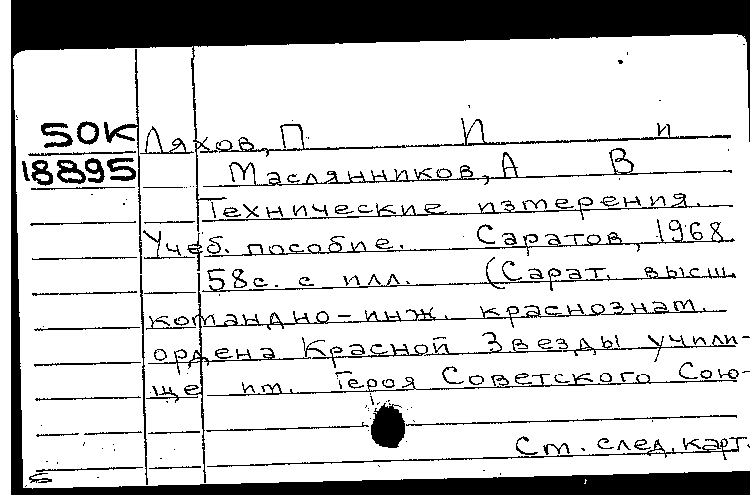 50К Ляхов, П И и
18895 Маслянников, А В
Технические измерения.
Учеб. пособие. Саратов, 1968
58с. с илл. (Сарат. высш.
командно-инж. краснознам.
ордена Красной Звезды учили-
ще им. Героя Советского Сою-
Ст. след. карт.